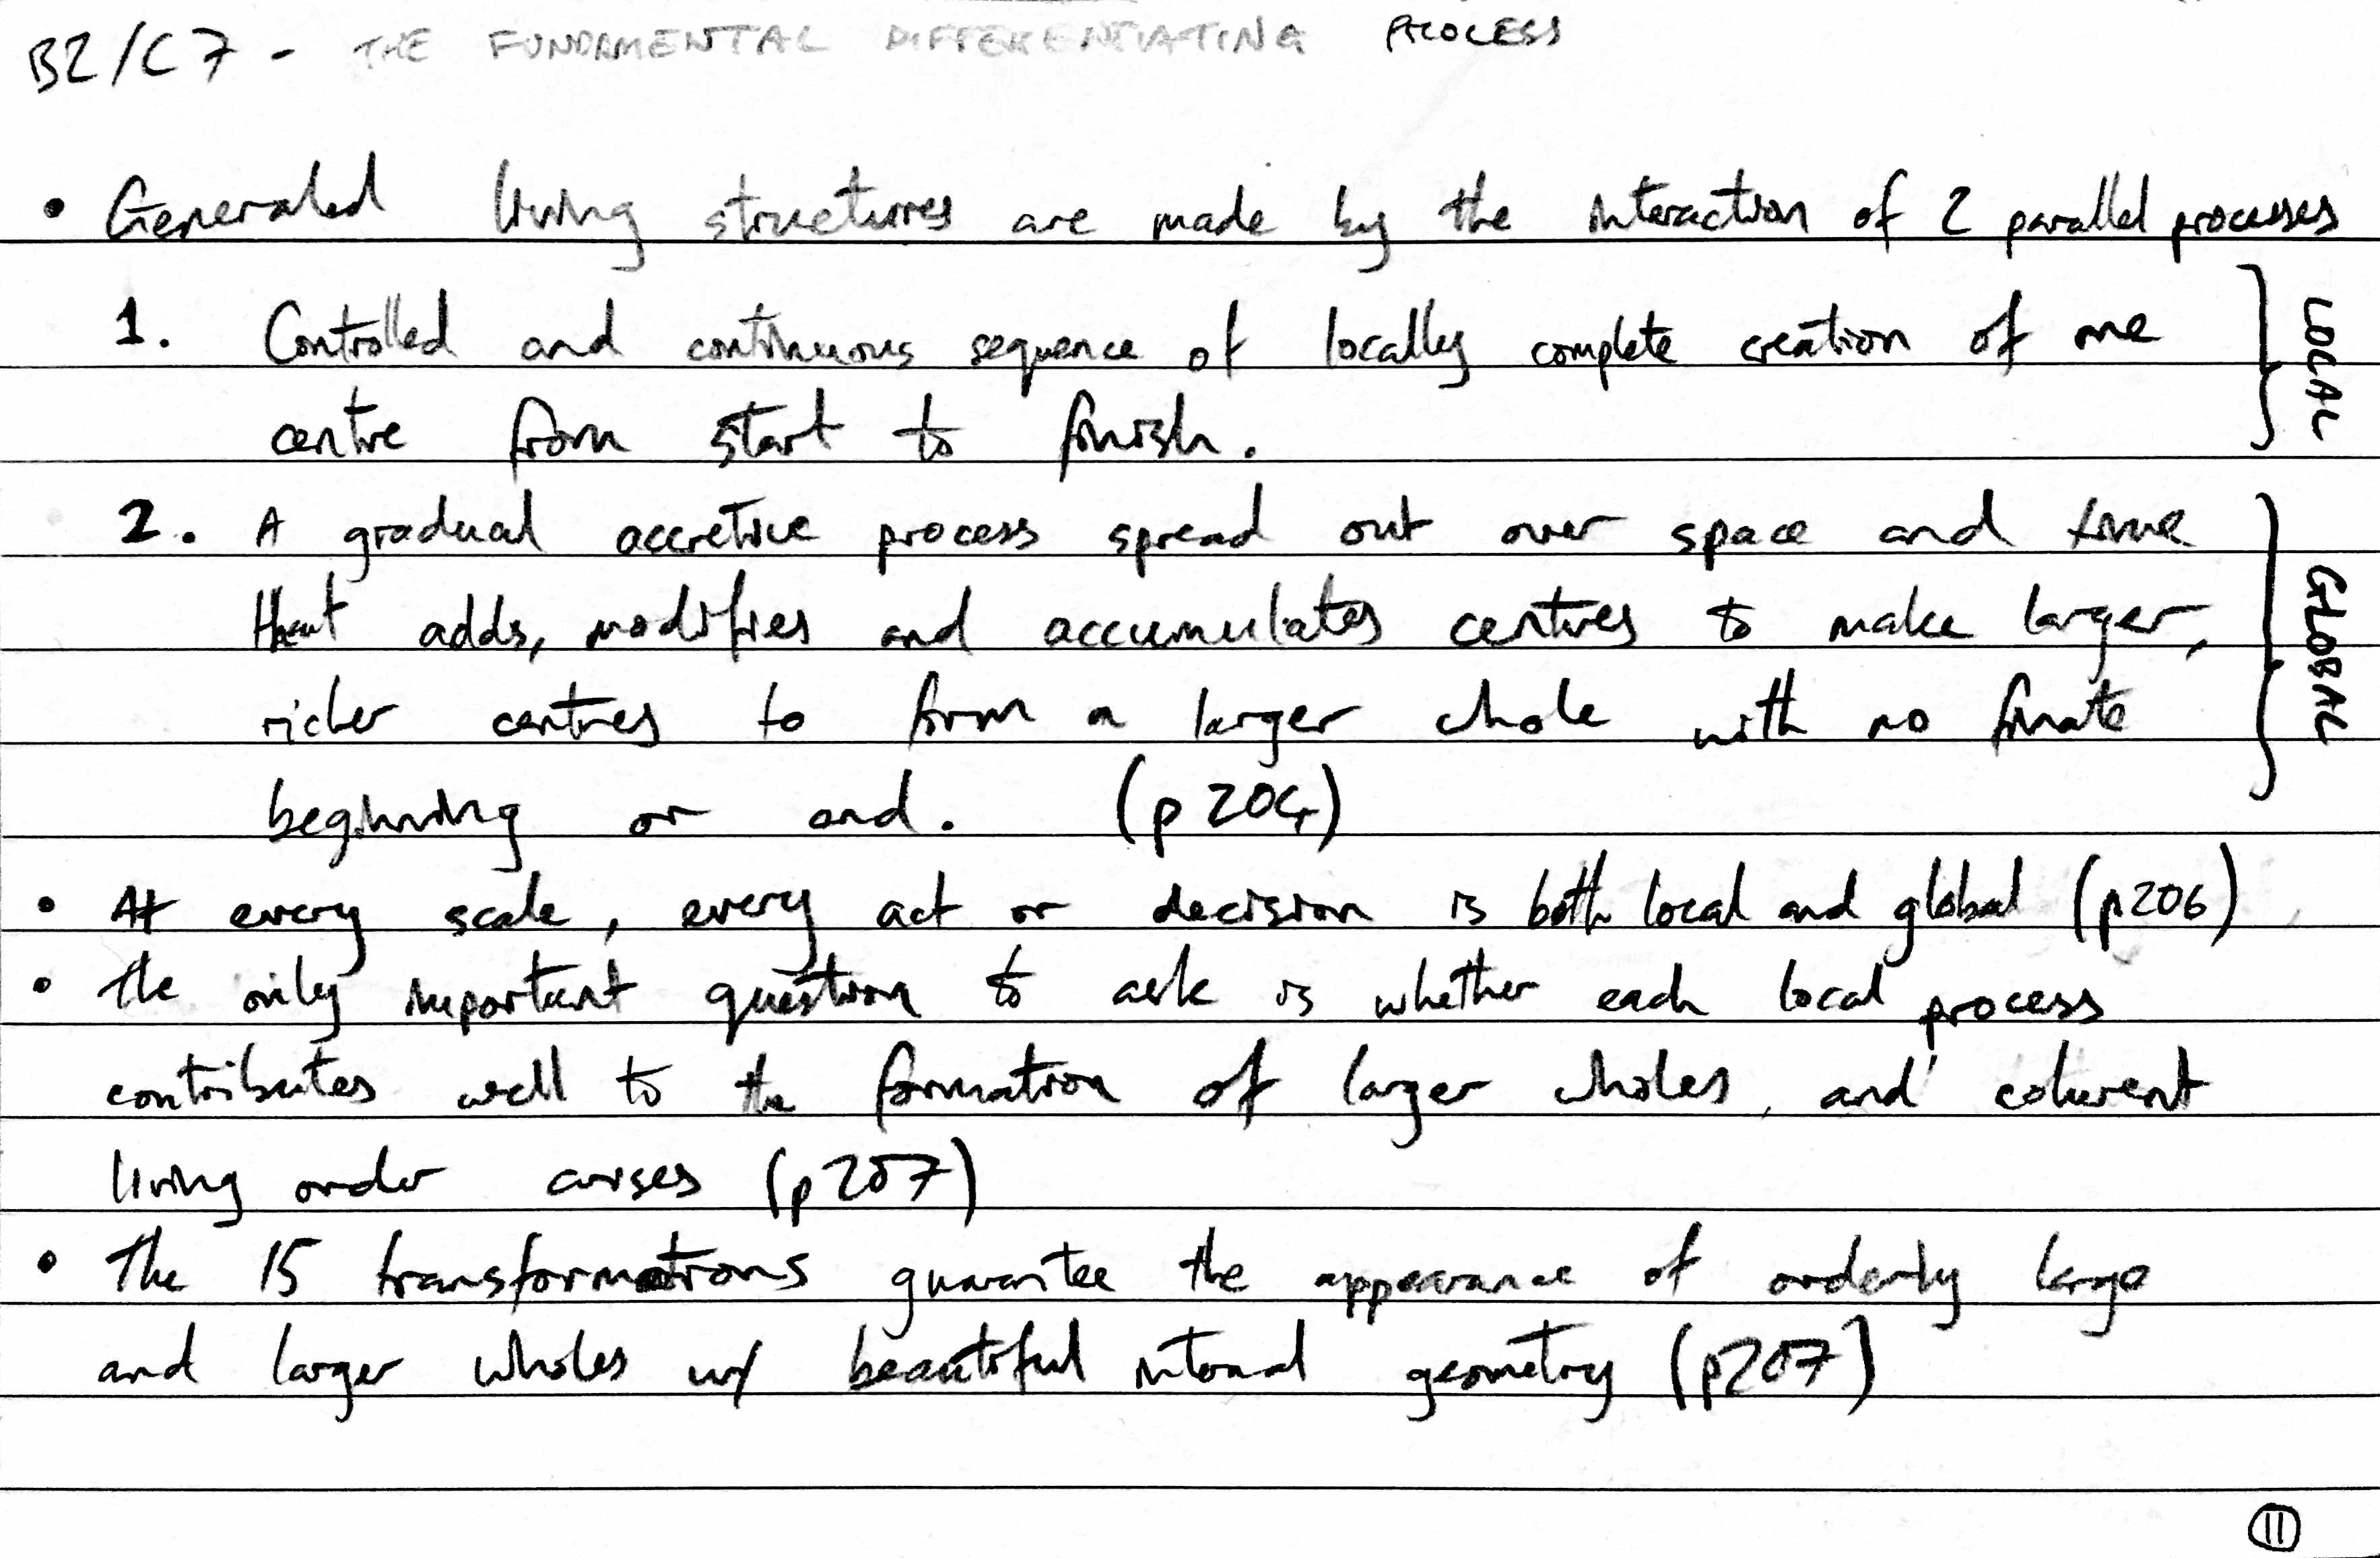 B2/C7 - THE FUNDAMENTAL DIFFERENTIATING PROCESS
• Generated living structures are made by the interaction of 2 parallel processes
1. Controlled and continuous sequence of locally complete creation of one
centre from start to finish.
LOCAL
2. A gradual accretive process spread out over space and time
that adds, modifies and accumulates centres to make larger,
richer centres to form a larger whole with no finate
beginning or end. (p204)
GLOBAL
• At every scale, every act or decision is both local and global (p206)
• The only important question to ask is whether each local process
contributes well to the formation of larger wholes, and coherent
living order arises (p207)
• The 15 transformations guarantee the appearance of orderly large
and larger wholes w/ beautiful internal geometry (p207)
11